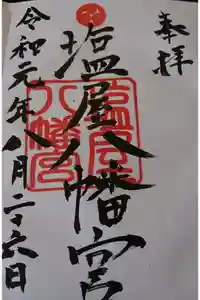 奉拝
塩屋八幡宮
塩屋八幡宮
令和元年八月二十六日